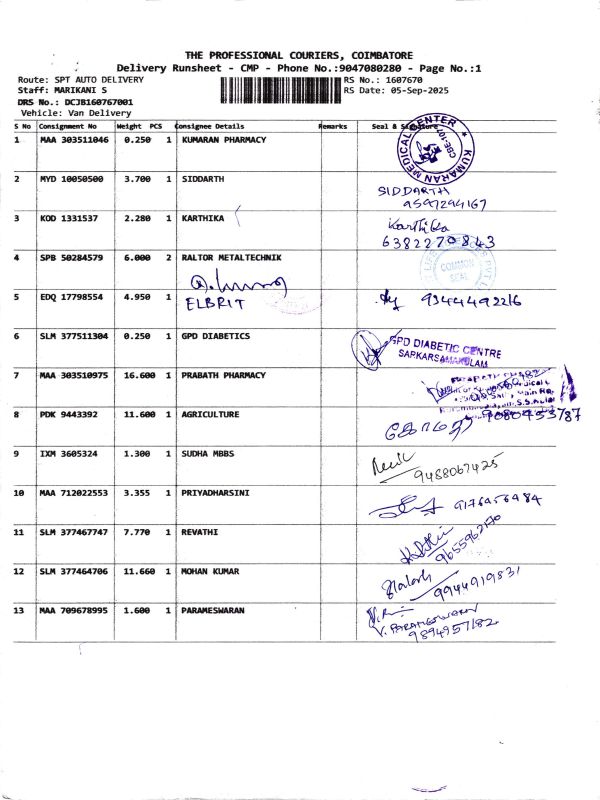 THE PROFESSIONAL COURIERS, COIMBATORE
Delivery Runsheet - CMP - Phone No.:9047080280 - Page No.:1
Route: SPT AUTO DELIVERY RS No.: 1607670
Staff: MARIKANI S RS Date: 05-Sep-2025
DRS No.: DCJB160767001
Vehicle: Van Delivery
S No Consignment No Weight PCS Consignee Details Remarks Seal & Signature
1 MAA 303511046 0.250 1 KUMARAN PHARMACY
KUMARAN MEDICAL CENTER
2 MYD 10050500 3.700 1 SIDDARTH
SIDDARTH
9597294167
3 KOD 1331537 2.280 1 KARTHIKA
Karthika
6382270843
4 SPB 50284579 6.000 2 RALTOR METALTECHNIK
COMMON
SEAL
5 EDQ 17798554 4.950 1 ELBRIT
9344492216
6 SLM 377511304 0.250 1 GPD DIABETICS
GPD DIABETIC CENTRE
SAPKARSAMAKULAM
7 MAA 303510975 16.600 1 PRABATH PHARMACY
8 PDK 9443392 11.600 1 AGRICULTURE
கோமதி 7080453787
9 IXM 3605324 1.300 1 SUDHA MBBS
9488067425
10 MAA 712022553 3.355 1 PRIYADHARSINI
9176956984
11 SLM 377467747 7.770 1 REVATHI
9655962170
12 SLM 377464706 11.660 1 MOHAN KUMAR
9944919831
13 MAA 709678995 1.600 1 PARAMESWARAN
V. PARAMESWARAN
9894957182